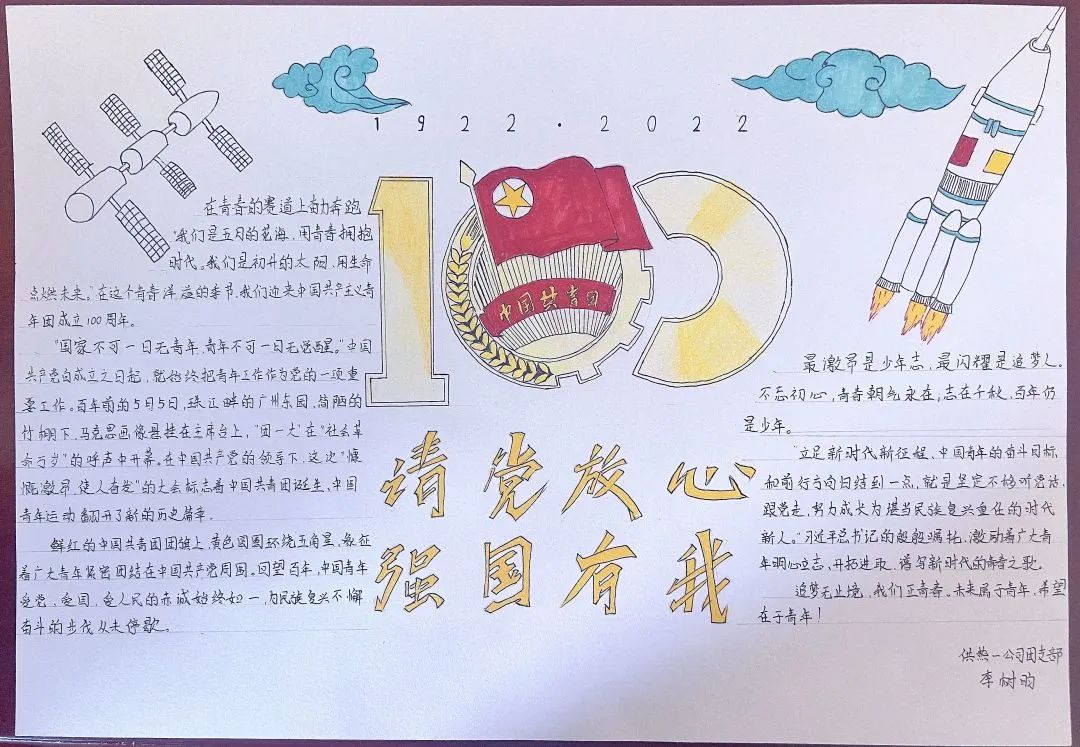 1922·2022
100
中国共青团
请党放心
强国有我
在青春的赛道上奋力奔跑
"我们是五月的花海,用青春拥抱
时代。我们是初升的太阳,用生命
点燃未来。"在这个青春洋溢的季节,我们迎来中国共产主义青
年团成立100周年。
"国家不可一日无青年,青年不可一日无觉醒。"中国
共产党自成立之日起,就始终把青年工作作为党的一项重
要工作。百年前的5月5日,珠江畔的广州东园,简陋的
竹棚下,马克思画像悬挂在主席台上,"团一大"在"社会革
命万岁"的呼声中开幕。在中国共产党的领导下,这次"慷
慨激昂、使人奋发"的大会标志着中国共青团诞生、中国
青年运动翻开了新的历史篇章。
鲜红的中国共青团团旗上,黄色圆圈环绕五角星,象征
着广大青年紧密团结在中国共产党周围。回望百年,中国青年
爱党、爱国、爱人民的赤诚始终如一,为民族复兴不懈
奋斗的步伐从未停歇。
最激昂是少年志,最闪耀是追梦人。
不忘初心,青春朝气永在;志在千秋,百年仍
是少年。
"立足新时代新征程、中国青年的奋斗目标
和前行方向归结到一点,就是坚定不移听党话、
跟党走,努力成长为堪当民族复兴重任的时代
新人。"习近平总书记的殷殷嘱托,激励着广大青
年明心立志、开拓进取、谱写新时代的青春之歌。
追梦无止境,我们正青春。未来属于青年,希望
在于青年!
供热一公司团支部
李树昀